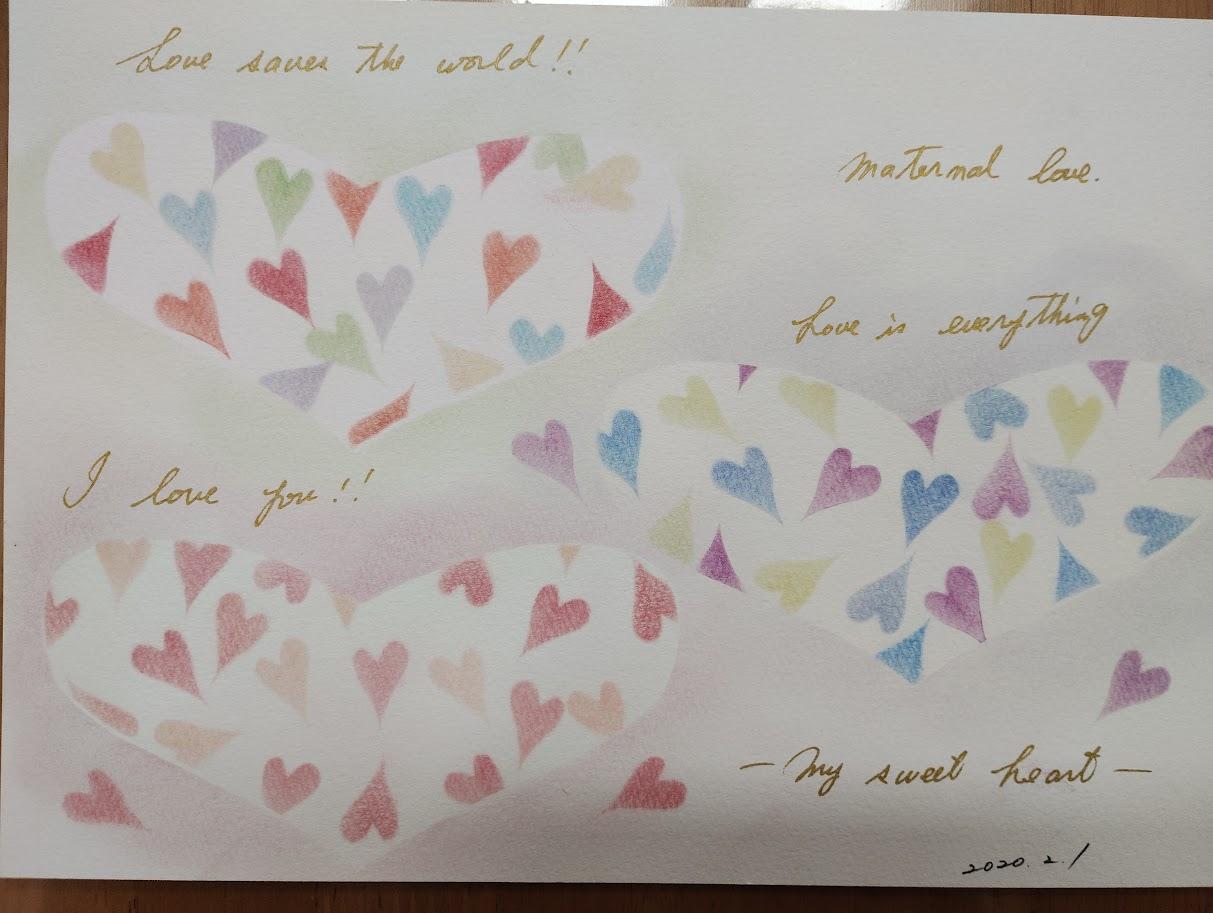 Love saves the world!!
maternal love.
Love is everything
I love you!!
— My sweet heart —
2020.2.1